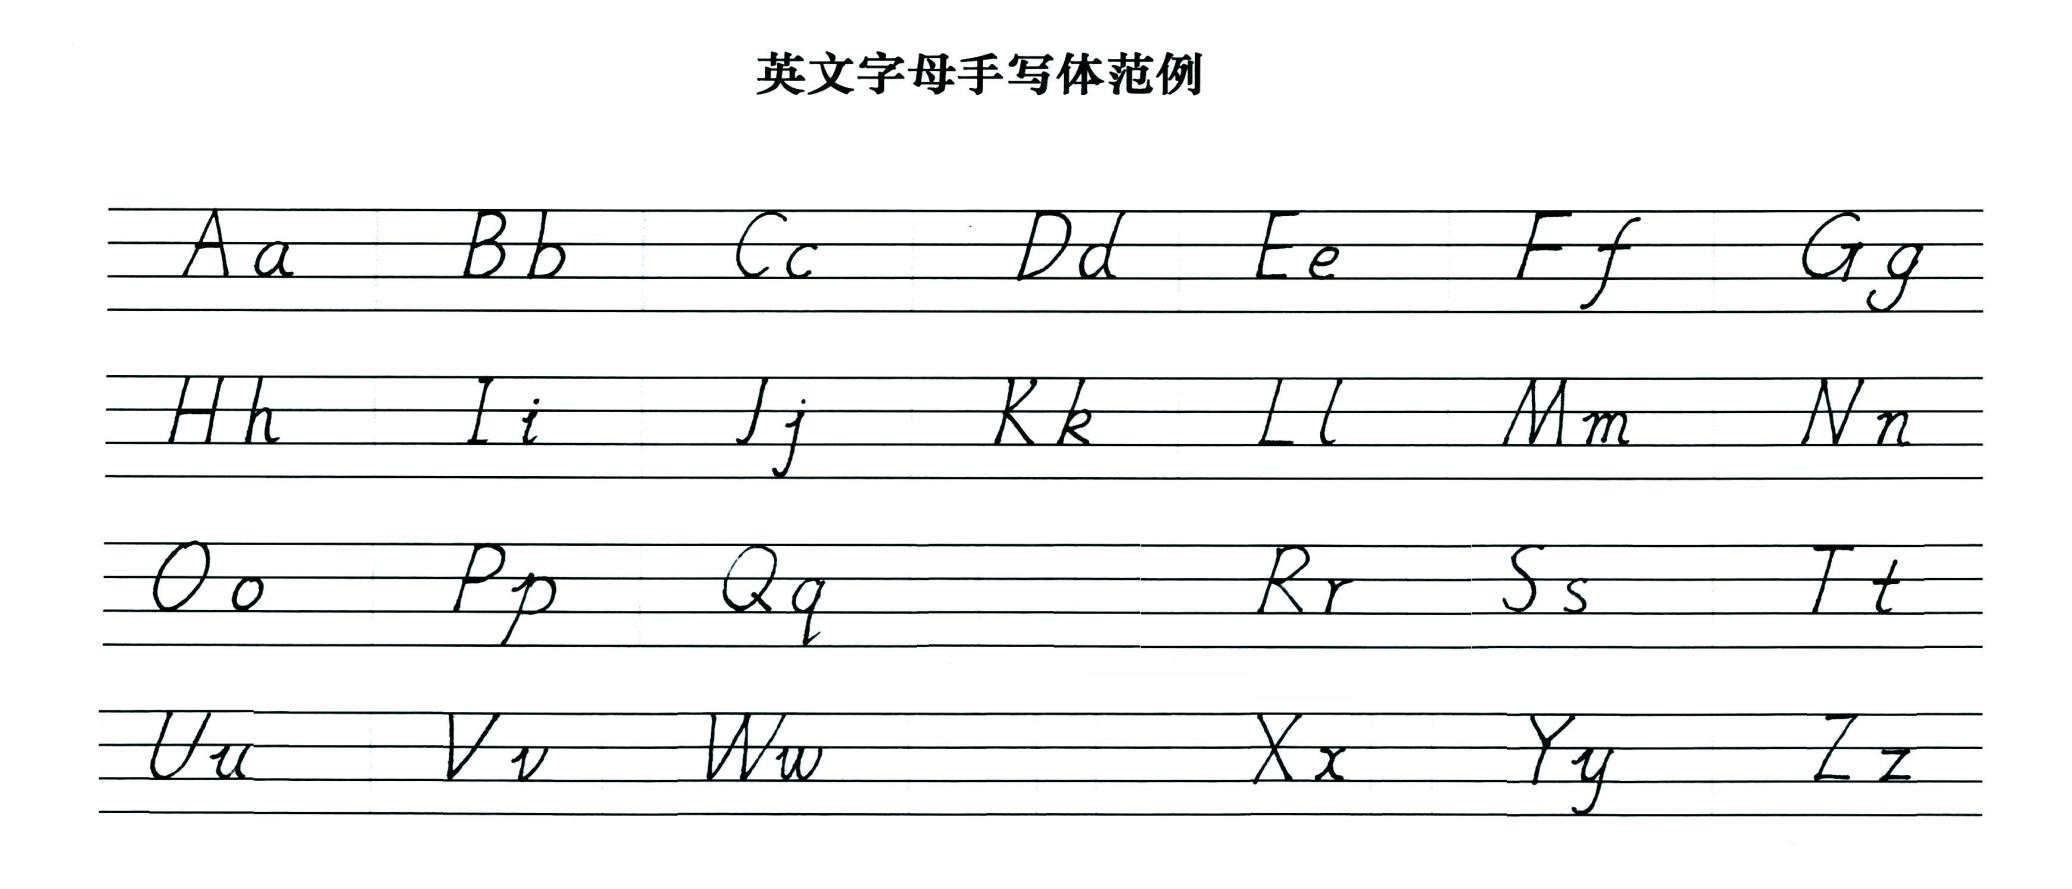 英文字母手写体范例
Aa Bb Cc Dd Ee Ff Gg
Hh Ii Jj Kk Ll Mm Nn
Oo Pp Qq Rr Ss Tt
Uu Vv Ww Xx Yy Zz